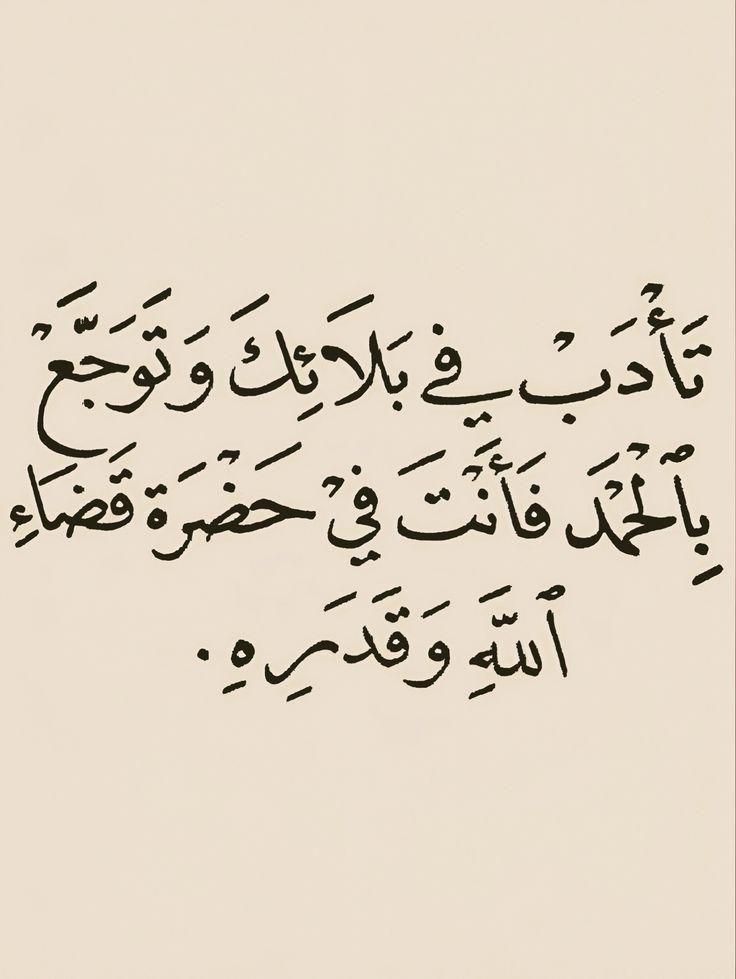 تَأْدَبْ في بَلَائِكَ وَتَوَجَّعْ
بِٱلْحَمْدَ فَأَنْتَ فِيْ حَضْرَة قَضَاءِ
ٱللَّهِ وَقَدَرِهِ.